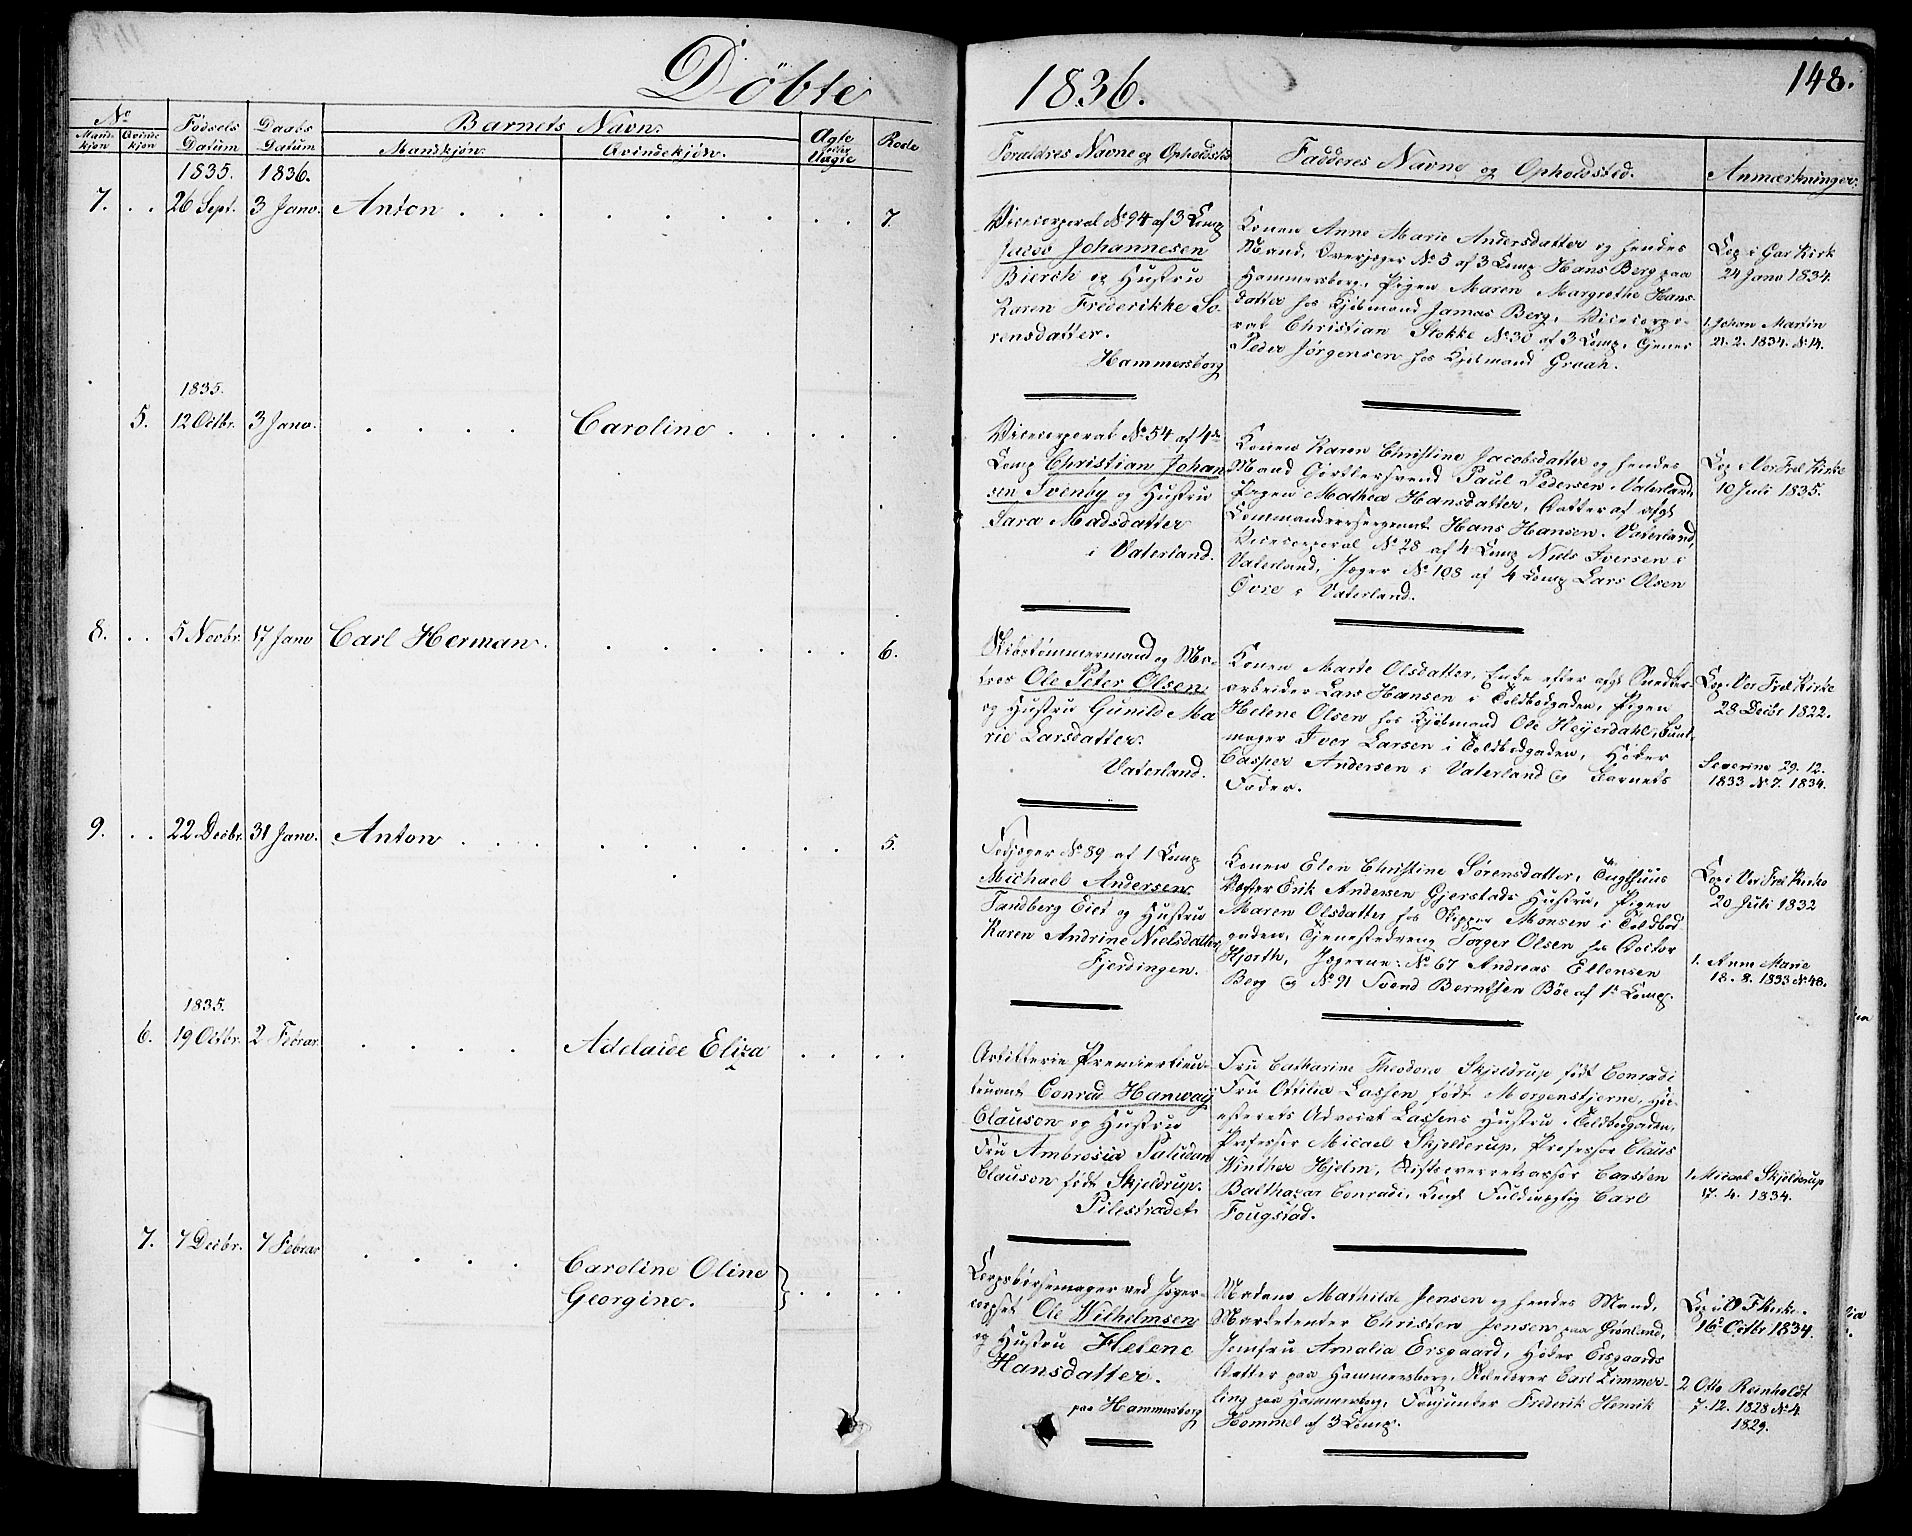 Döbte
1836.
148.
No
Mand-
kjön
Qvinde
kjön
Födsels
Datum
Daabs
Datum
Barnets Navn.
Mandkjön.
Qvindekjön.
Ægte
eller
Uægte
Rode
Foraldres Navne og Opholdsted
Fadderes Navne og Opholdsted.
Anmærkninger.
1835. 1836.
7. . . 26 Sept. 3 Janv. Anton . . . 7.
Vicecorporal No 94 af 3 Comp
Jacob Johannesen
Biersti og Hustru
Karen Frederikke So-
rensdatter.
Hammersborg
Konen Anne Marie Andersdatter og hendes
Mand, Overjæger No 5 af 3 Comp Hans Berg paa
Hammersborg, Pigen Maren Margrethe Hans-
datter hos Kjöbmand Jamas Berg, Vicecorpo-
ral Christian Stokke No 30 af 3 Comp, Tjener
Peder Jörgensen hos Kjöbmand Graah.
Cop i Gar Kirk
24 Janv 1834.
1. Johan Martin
21. 2. 1834. No 14.
1835.
5. 12 Octbr. 3 Janv. Caroline . . .
Vicecorporal No 54 af 4de
Comp Christian Johan
sen Svenby og Hustru
Sara Madsdatter
i Vaterland.
Konen Karen Christine Jacobsdatter og hendes
Mand Görtlersvend Paul Pedersen i Vaterland,
Pigen Mathea Hansdatter, Datter af afgl
Commandeersergeant Hans Hansen i Vaterland,
Vicecorporal No 28 af 4 Comp Niels Iversen i
Vaterland, Jæger No 108 af 4 Comp Lars Olsen
Övre i Vaterland.
Cop i Vor Frel Kirke
10 Juli 1835.
8. . . 5 Novbr. 17 Janv Carl Herman . . . 6.
Skibstömmermand og Ma-
tros Ole Peter Olsen
og Hustru Gunild Ma
rie Larsdatter.
Vaterland.
Konen Marte Olsdatter, Enke efter afgl Snedker-
arbeider Lars Hansen i Toldbodgaden, Pigen
Helene Olsen hos Kjöbmand Ole Heyerdahl, Bunt-
mager Iver Larsen i Toldbodgaden, Höker
Casper Andersen i Vaterland og Barnets
Fader.
Cop i Vor Frel Kirke
28 Decbr 1822.
Severine 29. 12.
1833 No 7. 1834.
9. . . 22 Decbr. 31 Janv. Anton . . . 5.
Fodjæger No 89 af 1 Comp
Michael Andersen
Tandberg Eiet og Hustru
Karen Andrine Nielsdatter
Fjerdingen.
Konen Elen Christine Sörensdatter, Tugthuus
Vogter Erik Andersen Gjerstads Hustru, Pigen
Maren Olsdatter hos Skipper Monsen i Toldbod
gaden, Tjenestedreng Torger Olsen hos Doctor
Hjorth, Jægerne: No 67 Andreas Ellensen
Berg og No 91 Svend Berntsen Böe af 1ste Comp.
Cop i Vor Frel Kirke
20 Juli 1832
1. Anne Marie
18. 8. 1833 No 48.
1835.
6. 19 Octbr. 2 Febrar. Adelaide Eliza . . .
Artillerie Premierlieu-
tenant Conrad Hanway
Clauson og Hustru
Fru Ambrosia Paludan
Clauson födt Skjeldrup.
Pilestrædet.
Fru Catharine Theodora Skjeldrup födt Conradi
Fru Ottilia Lassen födt Morgenstjerne, Höi-
esterets Advocat Lassens Hustru i Toldbodgaden,
Professor Micael Skjelderup, Professor Claus
Winther Hjelm, Stiftsoverretsassor Carsten
Balthazar Conradi, Kongl Fuldmægtig Carl
Fougstad.
1. Micael Skjelderup
17. 4. 1834.
7. 7 Decbr. 7 Febrar Caroline Oline
Georgine. . . .
Corpsbössemager ved Jæger-
corpset Ole Wilhelmsen
og Hustru Helene
Hansdatter.
paa Hammersborg
Madam Mathilde Jensen og hendes Mand,
Marketenter Christen Jensen paa Grönland,
Jomfru Amalia Ersgaard, Höker Ersgaards
Datter paa Hammersborg, Carl Zimmer-
ling paa Hammersborg, Frederik Henrik
Hommel af 3 Comp.
Cop i V F Kirke.
16de Octbr 1834.
2 Otto Reinholdt
7. 12. 1828 No 4.
1829.